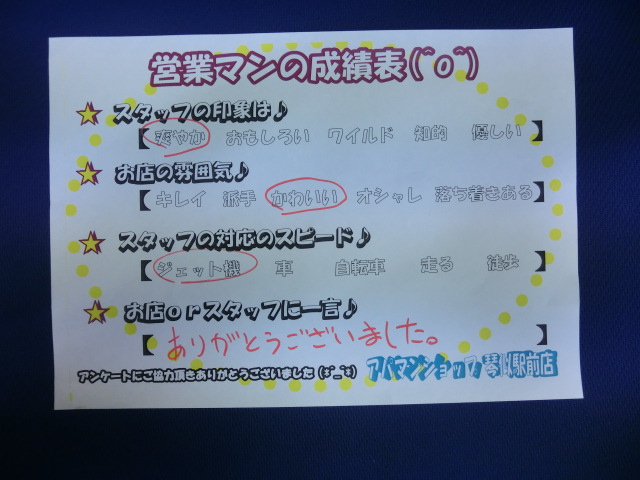 営業マンの成績表(^o^)
スタッフの印象は♪
【 爽やか おもしろい ワイルド 知的 優しい 】
お店の雰囲気♪
【 キレイ 派手 かわいい オシャレ 落ち着きある 】
スタッフの対応のスピード♪
【 ジェット機 車 自転車 走る 徒歩 】
お店orスタッフに一言♪
【 ありがとうございました。 】
アンケートにご協力頂きありがとうございました
アパマンショップ琴似駅前店